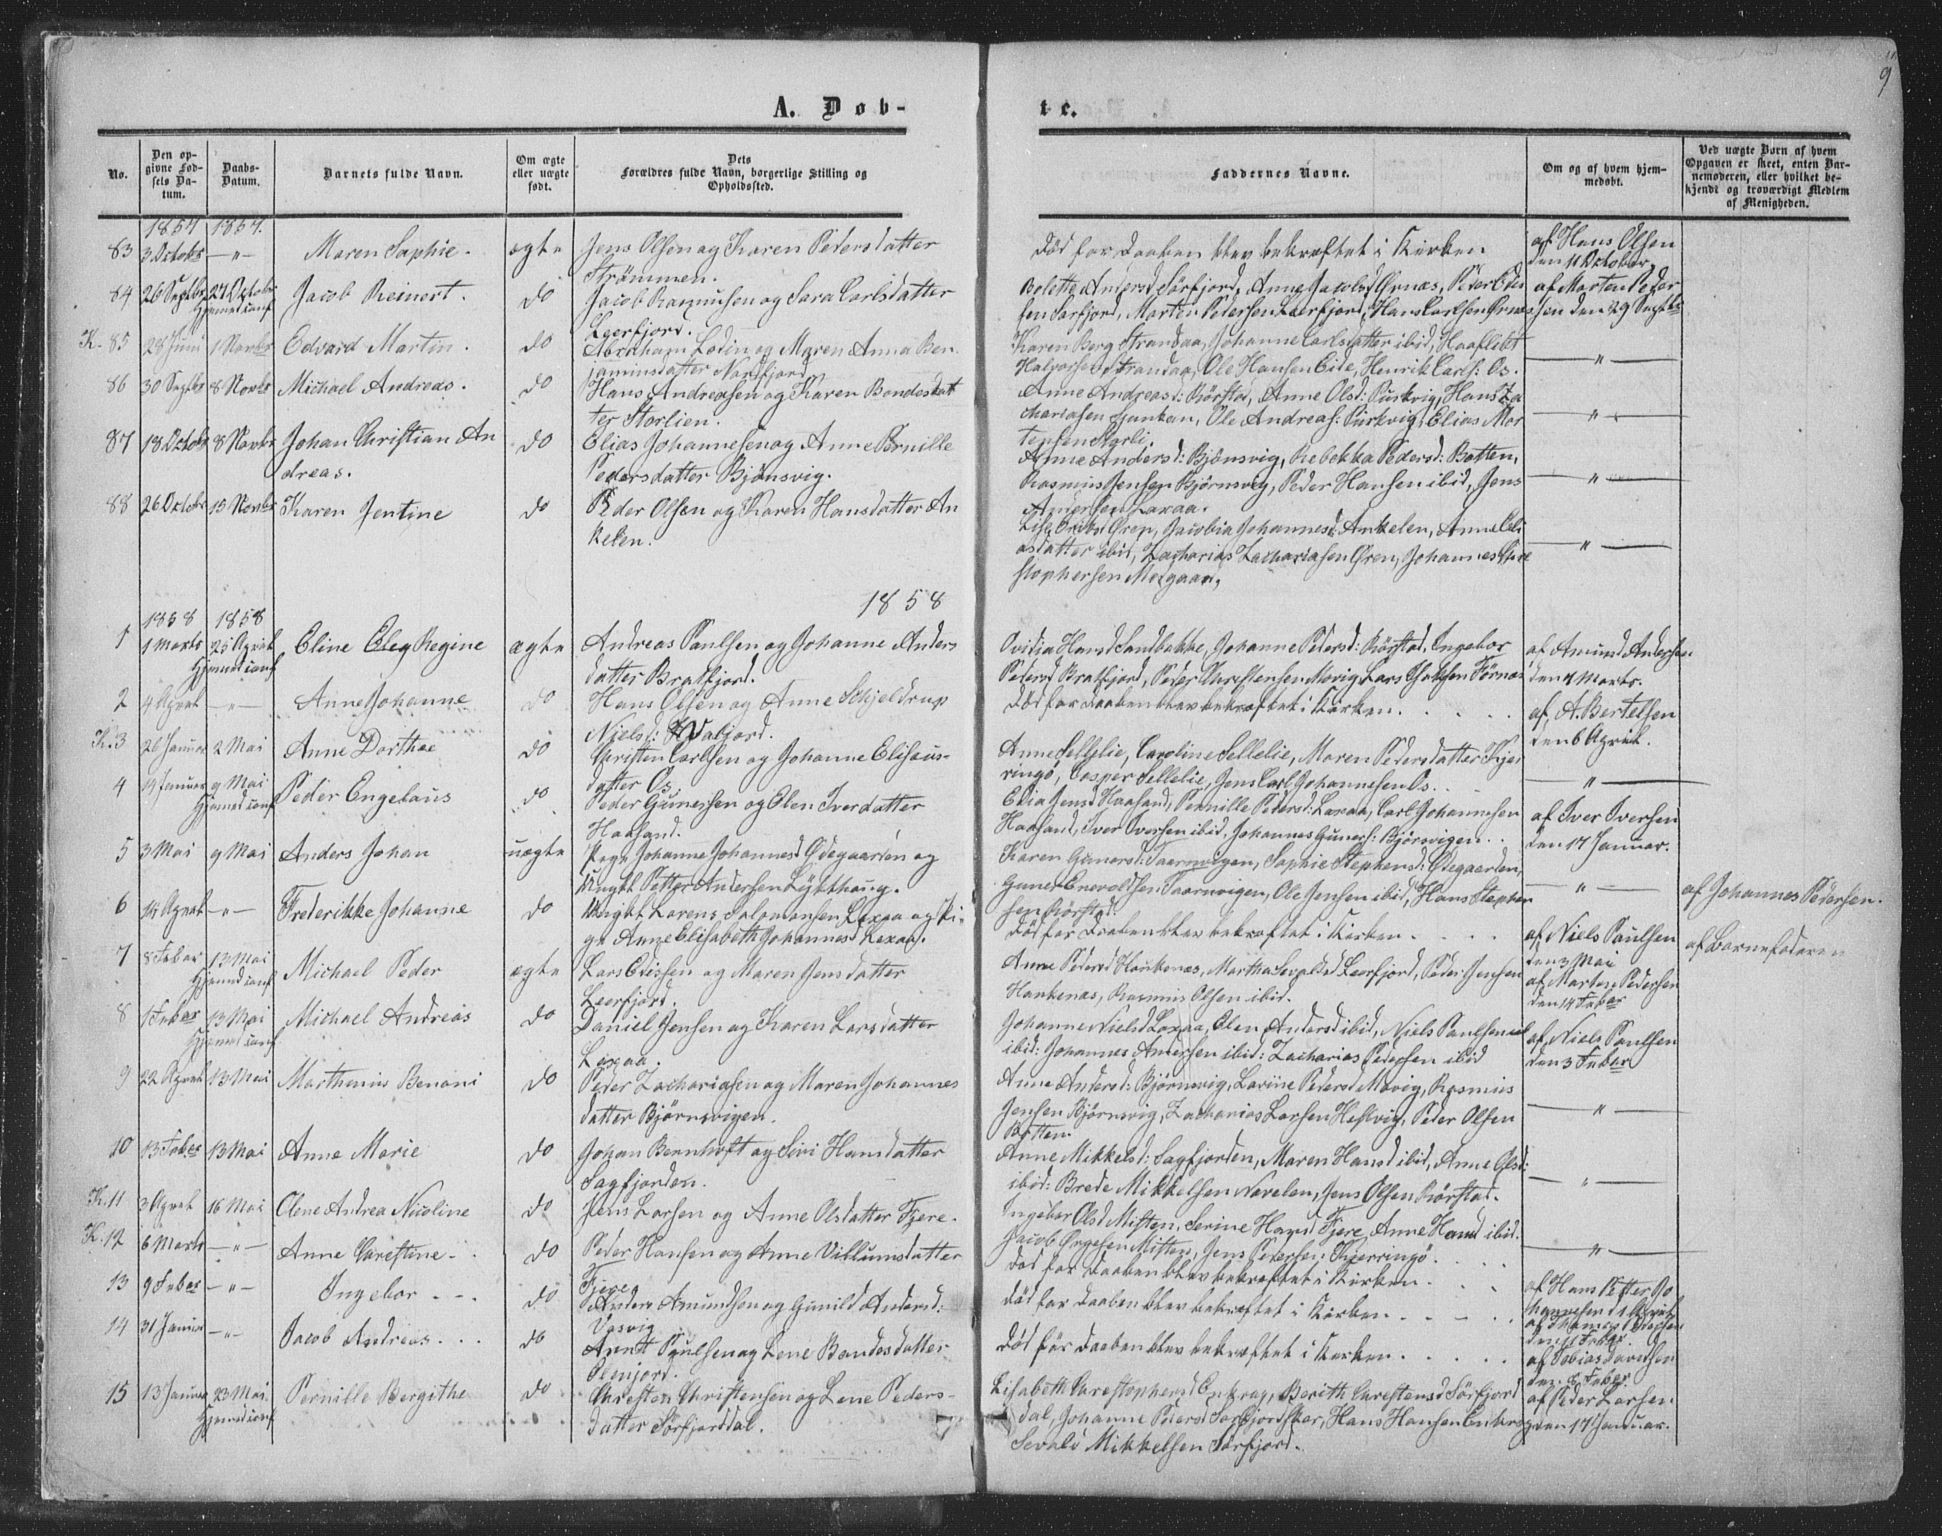 9
A. Døb-
te.
No.
Den op-
givne Fød-
sels Da-
tum.
Daabs-
Datum.
Barnets fulde Navn.
Om ægte
eller uægte
født.
Dets
Forældres fulde Navn, borgerlige Stilling og
Opholdssted.
Faddernes Navne.
Om og af hvem hjem-
medøbt.
Ved uægte Børn af hvem
Opgaven er skeet, enten Bar-
nemoderen, eller hvilket be-
kjendt og troværdigt Medlem
af Menigheden.
1857 1857.
83 3 Octobr —"— Maren Sophie. ægte Jens Olsen og Karen Pedersdatter
Strømmen.
Død før Daaben blev bekræftet i Kirken
af Hans Olsen
den 11 October
84 26 Septbr 27 October Jacob Reinert. do Jacob Rasmusen og Sara Carlsdatter
Hjemed conf
Leerfjord.
Bolette Andersd Sørfjord, Anne Jacobsd Ørnæs, Peder Eder
sen Sørfjord, Morten Pedersen Leerfjord, Hans Carlsen Ørnæs
af Morten Peder
sen den 29 Septbr
K. 85 28 Juni 1 Novbr Edvard Martin. do Abraham Lodin og Maren Anna Ben
jaminsdatter Nordfjord
Karen Berg Strandaa, Johanne Carlsdatter ibid, Haaflebt
Halvorsen Strandaa, Ole Hansen Eide, Henrik Carls: Os.
—"—
86 30 Septbr 8 Novbr Michael Andreas. do Hans Andreasen og Karen Bondesdat
ter Storlien.
Anne Andreasd: Rørstad, Anne Olsd: Purkvig, Hans Za
chariasen Tjunken, Ole Andreas: Purkvig, Elias Mor
tensen Storli.
—"—
87 13 Octobr 8 Novbr Johan Christian An
dreas.
do Elias Johannesen og Anne Pernille
Pedersdatter Bjønsvig.
Anne Andersd: Bjønsvig, Rebekka Pedersd: Botten,
Rasmus Jensen Bjørnsvig, Peder Hansen ibid, Jens
Andersen Laxaa.
—"—
88 26 Octobr 15 Novbr Karen Jentine do Peder Olsen og Karen Hansdatter An
kelen.
Øren, Jacobia Johannesd. Ankelen, Anne Eli
asdatter ibid, Zacharias Zachariasen Øren, Johannes Chri
stophersen Morgaar,
—"—
1858
1858 1858
1 1 Marts 25 April Eline Eleg Regine ægte Andreas Paulsen og Johanne Anders
Hjemed conf
datter Bratfjord.
Ovidia Hansd Sandbakke, Johanne Pedersd: Rørstad, Ingebor
Pedersd Bratfjord, Peder Christensen Movig, Lars Jakobsen Fornæs
af Amund Andersen
den 4 Marts.
2 4 April —"— Anne Johanne do Hans Olsen og Anne Schjeldrup
Nielsd: Hvalfjord.
Død før Daaben blev bekræftet i Kirken.
af, A. Bertelsen
den 6 April.
K. 3 26 Januar 2 Mai Anne Dorthae do Christen Carlsen og Johanne Eliseus-
datter Os
Anne Jellelie, Caroline Jellelie, Maren Pedersdatter Kjer
ringø, Casper Jellelie, Jens Carl Johannesen Os.
—"—
4 14 Januar 9 Mai Peder Engelaus do Peder Gunersen og Elen Iverdatter
Hjemed conf
Haasand.
Elia Jensd Haasand, Pernille Pedersd: Laxaa, Carl Johannesen
Haasand, Iver Iversen ibid, Johannes Guners: Bjørnvigen.
af Iver Iversen
den 17 Januar.
5 3 Mai 9 Mai Anders Johan uægte Pige Johanne Johannesd Ødegaarden og
Ungkl Petter Andersen Lytthaug.
Karen Gunersd: Taarnvigen, Sophie Stephensd: Ødegaarden,
Guner Enevoldsen Taarnvigen, Ole Jensen ibid, Hans Stephen
sen Rørstad.
—"—
af Johannes Pedersen.
6 14 April —"— Frederikke Johanne do Ungkl Lorens Salomonsen Laxaa og Pi-
ge Anne Elisabeth Johannesd Laxaa.
Død før Daaben blev bekræftet i Kirken.
af Niels Paulsen
den 3 Mai
af Barnefaderen
7 8 Febar 13 Mai Michael Peder ægte Lars Edissen og Maren Jensdatter
Hjemed conf
Leerfjord.
Anne Pedersd Hankenæs, Martha Sevaldsd Leerfjord, Peder Jensen
Hankenæs, Rasmus Olsen ibid.
af Morten Pedersen
den 14 Febar
8 1 Febar 13 Mai Michael Andreas do Daniel Jensen og Karen Larsdatter
Hjemed conf
Laxaa.
Johanne Nielsd Laxaa, Elen Andersd ibid, Niels Paulsen
ibid: Johannes Andersen ibid: Zacharias Pedersen ibid
af Niels Paulsen
den 3 Febar
9 22 April 13 Mai Marthinus Benoni do Peder Zachariasen og Maren Johannes
datter Bjørnsvigen.
Anne Andersd: Bjørnsvig, Lorine Pedersd Movig, Rasmus
Jensen Bjørnsvig, Zacharias Larsen Hestvig, Peder Olsen
Botten.
—"—
10 13 Febar 13 Mai Anne Marie do Johan Bernhoft og Sivi Hansdatter
Sagfjorden.
Anne Mikkelsd: Sagfjorden, Maren Hansd ibid, Anne Olsd:
ibid: Brede Mikkelsen Navelen, Jens Olsen Rørstad.
—"—
K. 11 3 April 16 Mai Olene Andrea Nicoline do Jens Larsen og Anne Olsdatter Fjere.
Ingebor Olsd Misten, Serine Hansd Fjere Anne Hansd ibid.
Jacob Ørgesen Misten, Jens Petersen: Kjerringø.
—"—
K. 12 6 Marts —"— Anne Christine do Peder Hansen og Anne Villumsdatter
Fjere
Død før Daaben blev bekræftet i Kirken
af Hans Petter Jo
hannesen d 1 April
13 9 Febar —"— Ingebor do Anders Amundsen og Gunild Andersd:
Vasvig
Død før Daaben blev bekræftet i Kirken
14 31 Januar —"— Jacob Andreas do Arnt Paulsen og Lene Bondesdatter
Død før Daaben blev bekræftet i Kirken
af Tobias Davidsen
15 13 Januar 23 Mai Pernille Bergithe do Christen Christensen og Lene Peders-
Hjemed conf
datter Sørfjorddal.
Lisabeth Christophersd Enkrog, Berith Christensd Sørfjord
dal, Johanne Pedersd Sørfjordskar, Hans Hansen Enkrog
Sevald Mikkelsen Sørfjord.
af Peder Larsen
den 17 Januar.